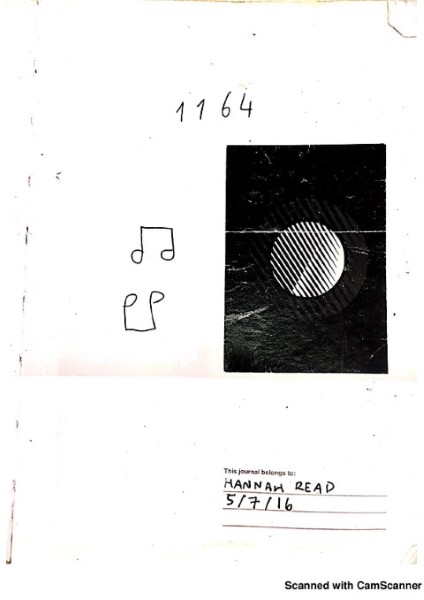 1164
This journal belongs to:
HANNAH READ
5/7/16
Scanned with CamScanner